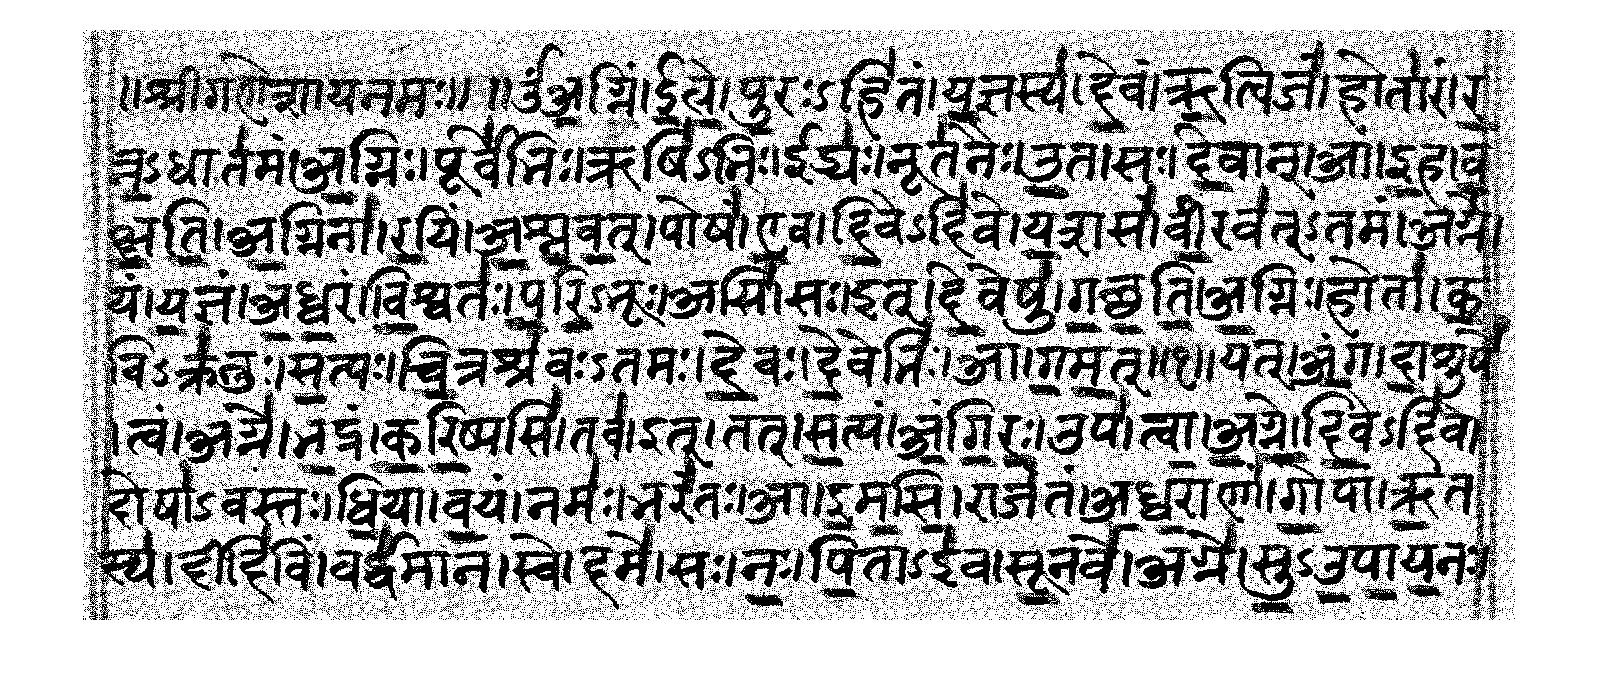 ॥श्रीगणेशायनमः॥ ॥ॐअग्निं।ईळे।पुरःऽहितं।यज्ञस्य।देवं।ऋत्विजं।होतारं।र
त्नऽधातमं।अग्निः।पूर्वेभिः।ऋषिऽभिः।ईड्यः।नूतनैः।उत।सः।देवान्।आ।इह।व
क्षति।अग्निना।रयिं।अश्नवत्।पोषं।एव।दिवेऽदिवे।यशसं।वीरवत्ऽतमं।अग्ने।
यं।यज्ञं।अध्वरं।विश्वतः।परिऽभूः।असि।सः।इत्।देवेषु।गच्छति।अग्निः।होता।क
विऽक्रतुः।सत्यः।चित्रश्रवःऽतमः।देवः।देवेभिः।आ।गमत्॥१॥यत्।अंग।दाशुषे
।त्वं।अग्ने।भद्रं।करिष्यसि।तव।इत्।तत्।सत्यं।अंगिरः।उप।त्वा।अग्ने।दिवेऽदिवे।
दोषाऽवस्तः।धिया।वयं।नमः।भरंतः।आ।इमसि।राजंतं।अध्वराणां।गोपां।ऋत
स्य।दीदिविं।वर्द्धमानं।स्वे।दमे।सः।नः।पिताऽइव।सूनवे।अग्ने।सुऽउपायनः।